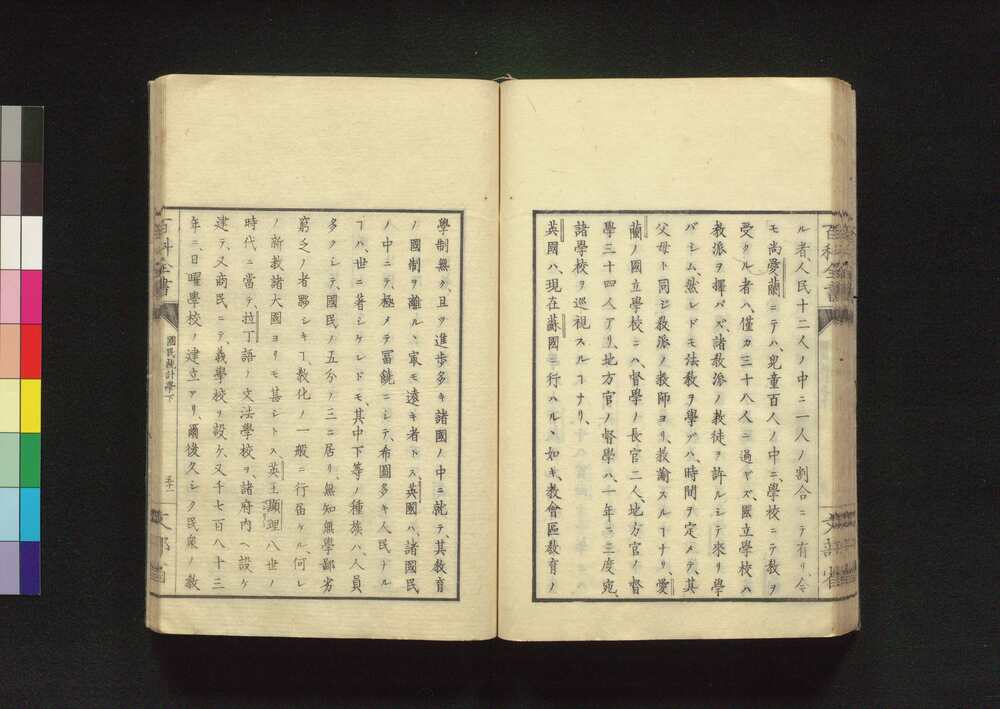 ル者、人民十二人ノ中ニ一人ノ割合ニテ有リ、今
モ尚愛蘭ニテハ、兒童百人ノ中ニ、學校ニテ教ヲ
受クル者ハ、僅カ三十八人ニ過ギズ、國立學校ハ
教派ヲ擇バズ、諸教派ノ教徒ヲ許ルシテ來リ學
バシム、然レドモ法教ヲ學ブハ、時間ヲ定メテ、其
父母ト同ジ教派ノ教師ヨリ、教諭スルヿナリ、愛
蘭ノ國立學校ニハ、督學ノ長官二人、地方官ノ督
學三十四人アリ、地方官ノ督學ハ、一年ニ三度宛、
諸學校ヲ巡視スルヿナリ、
英國ハ、現在蘇國ニ行ハルヽ如キ、教會區教育ノ
學制無ク、且ツ進歩多キ諸國ノ中ニ就テ、其教育
ノ國制ヲ離ルヽ最モ遠キ者トス、英國ハ、諸國民
ノ中ニテ、極メテ富饒ニシテ、希圖多キ人民ナル
ヿハ、世ニ著シケレドモ、其中下等ノ種族ハ、人員
多クシテ、國民ノ五分ノ三ニ居リ、無知無學鄙劣
窮乏ノ者夥シキヿ、教化ノ一般ニ行届ケル、何レ
ノ新教諸大國ヨリモ甚シトス、英王顯理八世ノ
時代ニ當テ、拉丁語ノ文法學校ヲ、諸府内ヘ設ケ
建テ、又商民ニテ、義學校ヲ設ケ、又千七百八十三
年ニ、日曜學校ノ建立アリ、爾後久シク民衆ノ教
百科全書
國民統計學下
文部省
百科全書
文部省